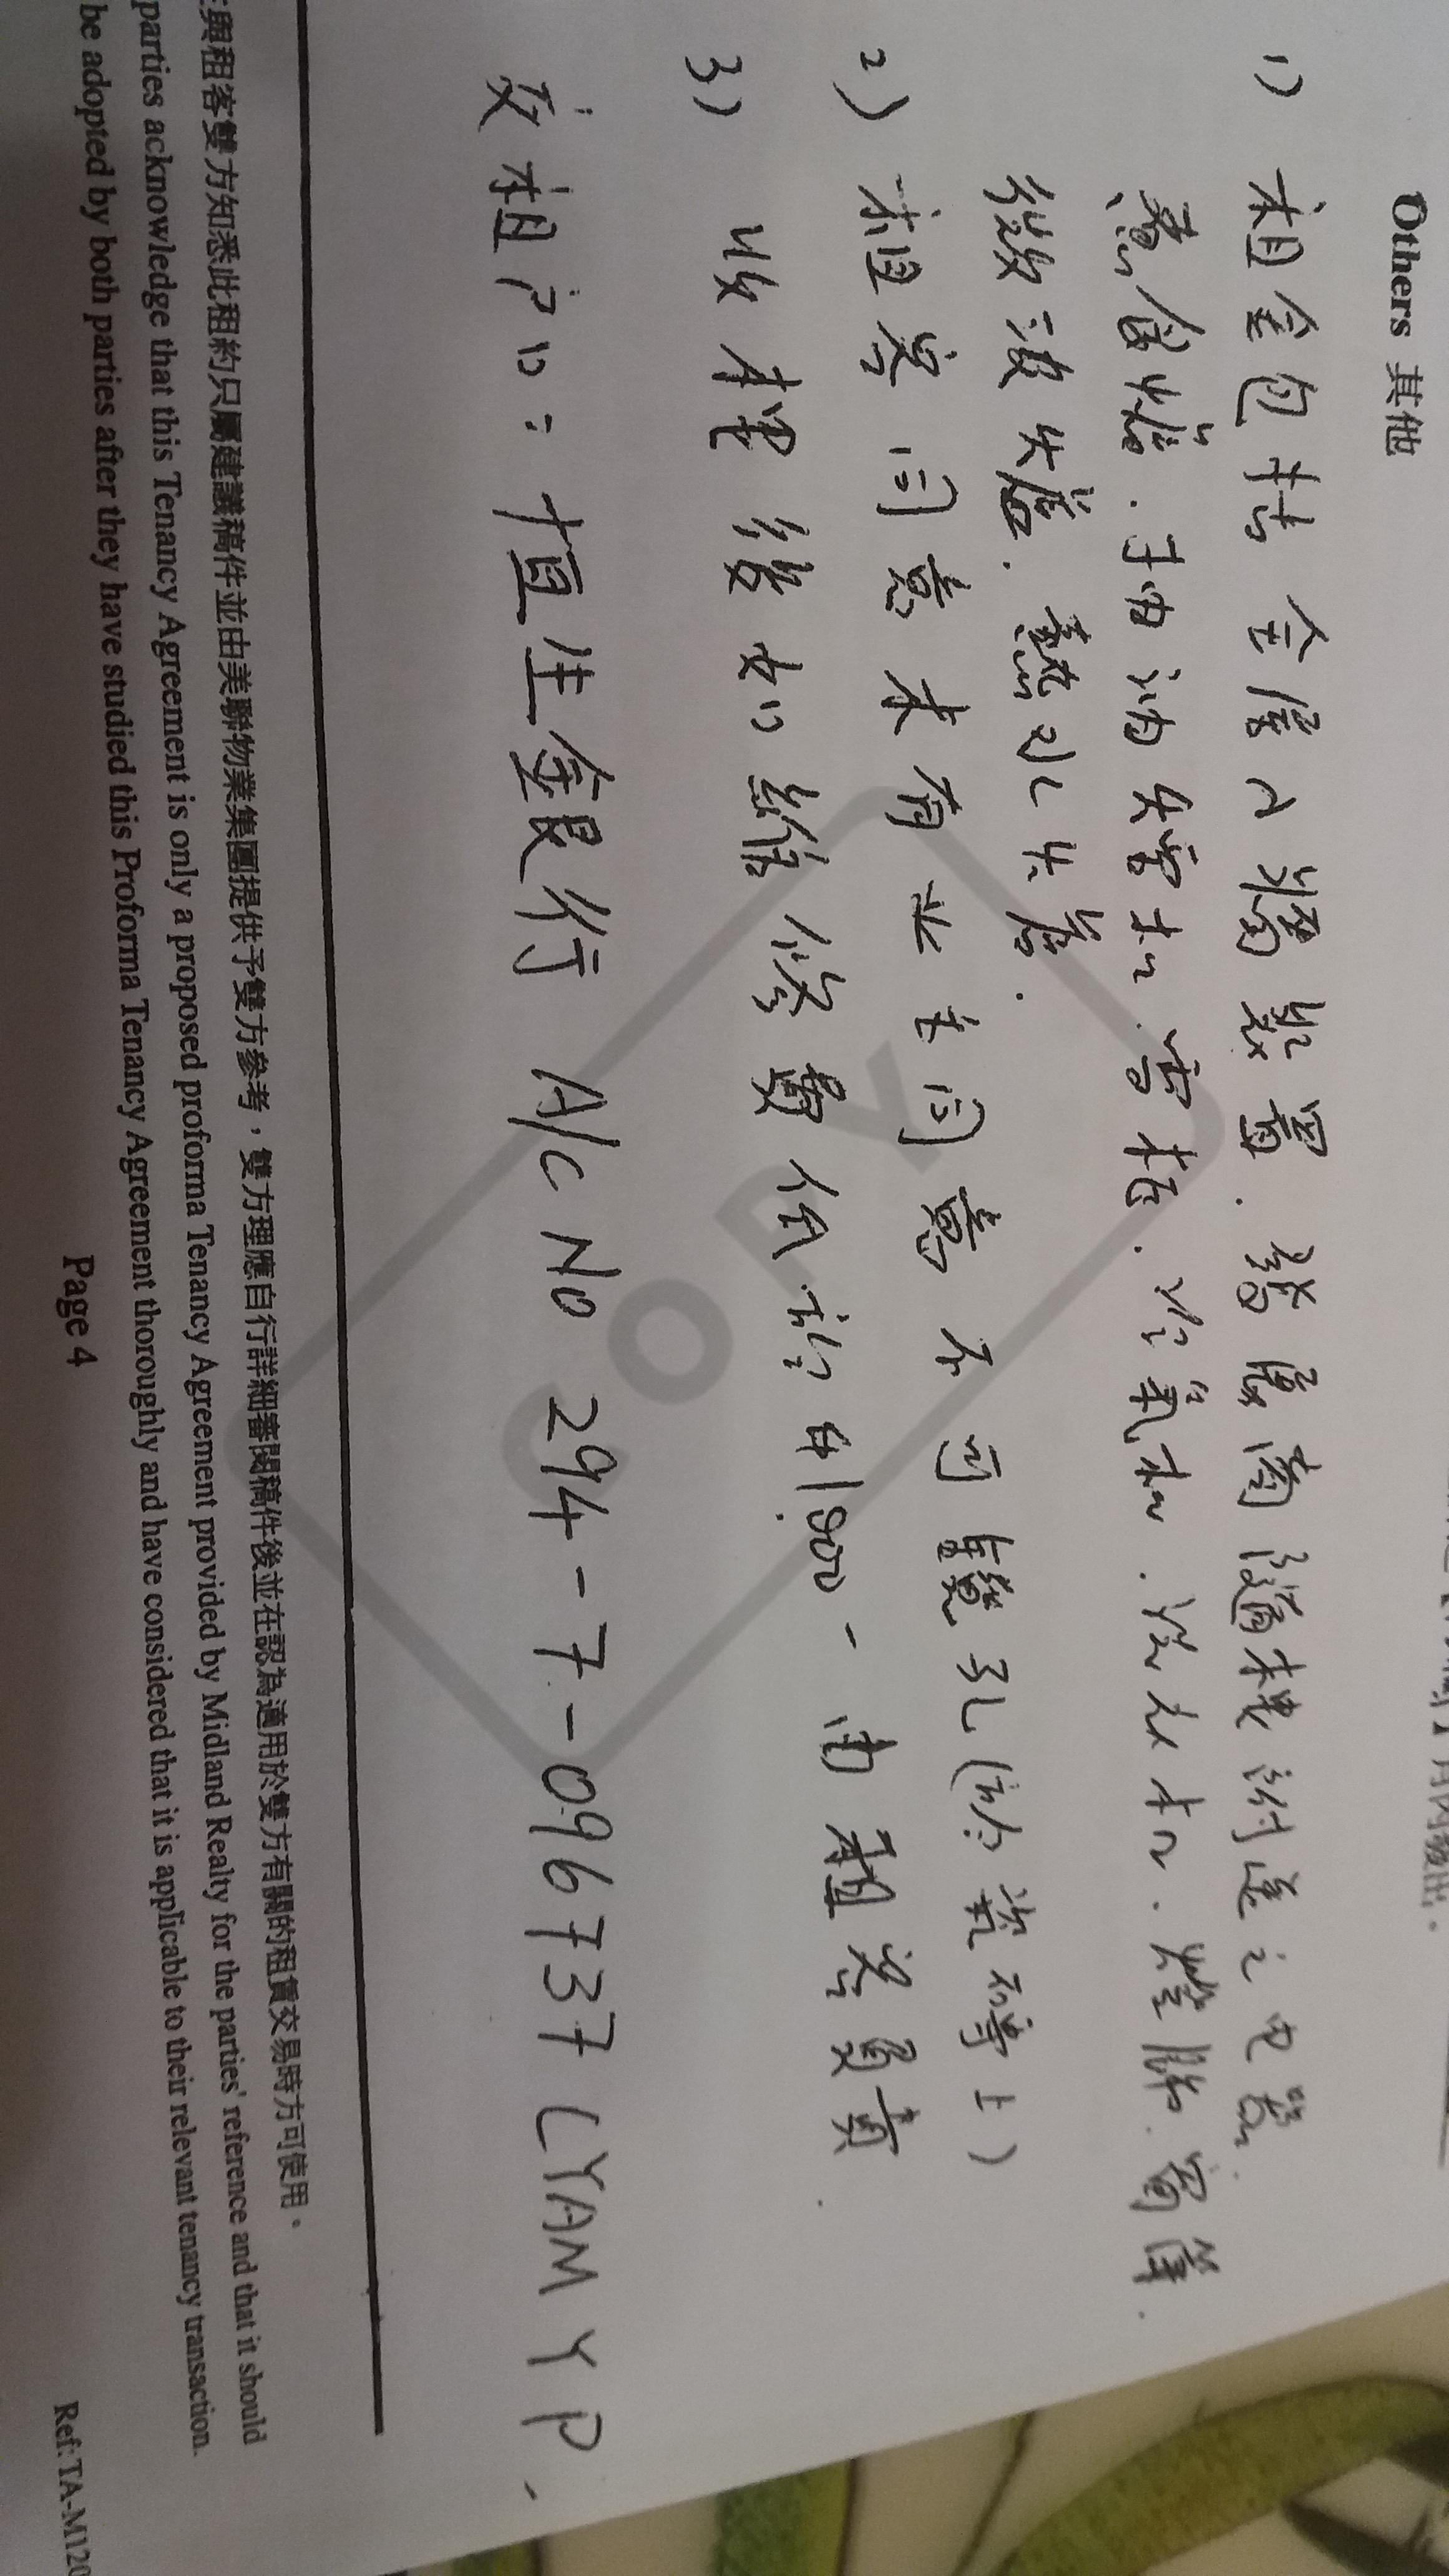 Others 其他
1) 租金包括全屋入牆裝置. 發展商隨樓附送之电器.
煮食爐. 抽油烟机. 雪柜. 冷氣机. 洗衣机. 燈胆. 窗簾.
微波炉. 熱水炉.
2) 租客同意未有业主同意不可鑽孔(瓷磚上)
3) 收樓後如維修費低於$1500- 由租客負責.
交租户口: 恒生銀行 A/C NO 294-7-096737 (YAM Y P.
與租客雙方知悉此租約只屬建議稿件並由美聯物業集團提供予雙方參考，雙方理應自行詳細審閱稿件後並在認為適用於雙方有關的租賃交易時方可使用。
parties acknowledge that this Tenancy Agreement is only a proposed proforma Tenancy Agreement provided by Midland Realty for the parties' reference and that it should
be adopted by both parties after they have studied this Proforma Tenancy Agreement thoroughly and have considered that it is applicable to their relevant tenancy transaction.
Page 4
Ref: TA-M120
COPY